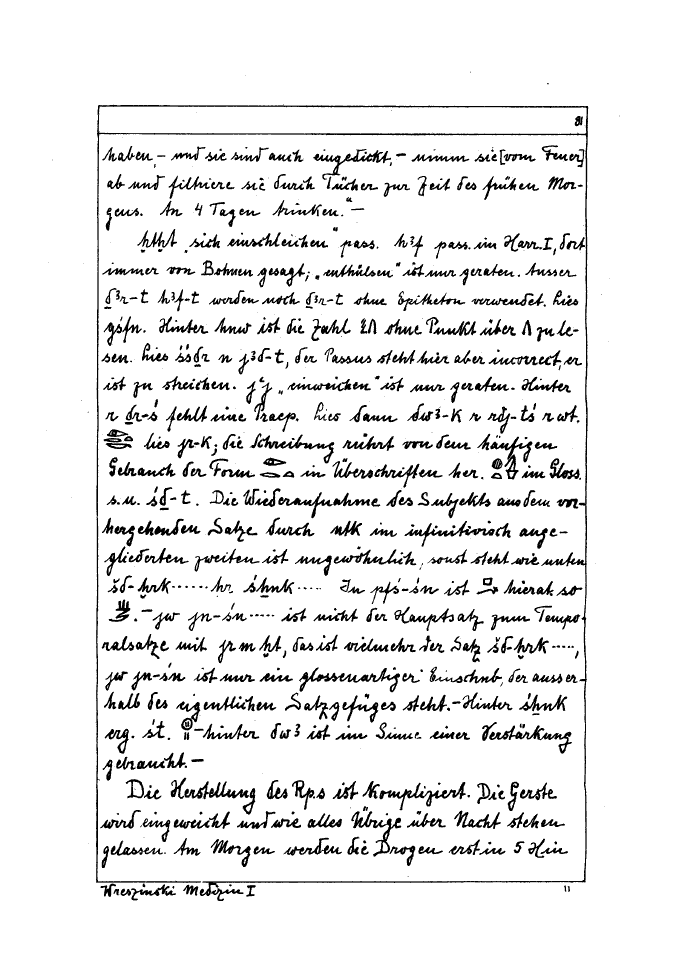 81
haben, – und sie sind auch eingedickt, – nimm sie [vom Feuer]
ab und filtriere sie durch Tücher zur Zeit des frühen Mor-
gens. An 4 Tagen trinken." –
ḫtḫt „sich einschleichen" pass. hꜣf pass. im Harr. I, dort
immer von Bohnen gesagt; „enthülsen" ist nur geraten. Ausser
ḏꜣr-t hꜣf-t werden noch ḏꜣr-t ohne Epitheton verwendet. Lies
gśfn. Hinter hnw ist die Zahl ohne Punkt über ∩ zu le-
sen. Lies śśḏr n jꜣd-t, der Passus steht hier aber incorrect, er
ist zu streichen. jꜥj „einweichen" ist nur geraten. Hinter
r ḏr-ś fehlt eine Praep. Lies dann dwꜣ-k r rdj-tś r wt.
lies jr-k; die Schreibung rührt von dem häufigen
Gebrauch der Form in Überschriften her. im Gloss.
s.u. śḏ-t. Die Wiederaufnahme des Subjekts aus dem vor-
hergehenden Satze durch ntk im infinitivisch ange-
gliederten zweiten ist ungewöhnlich, sonst steht wie unten
šd-ḫrk ...... ḥr śḫnk ..... In pfś-śn ist hierat. so
. – jw jn-śn ..... ist nicht der Hauptsatz zum Tempo-
ralsatze mit jr m ḫt, das ist vielmehr der Satz šd-ḫrk .....,
jw jn-śn ist nur ein glossenartiger Einschub, der ausser-
halb des eigentlichen Satzgefüges steht. – Hinter śḫnk
erg. śt. – hinter dwꜣ ist im Sinne einer Verstärkung
gebraucht. –
Die Herstellung des Rp.s ist kompliziert. Die Gerste
wird eingeweicht und wie alles Übrige über Nacht stehen
gelassen. Am Morgen werden die Drogen erst in 5 Hin
Wreszinski Medizin I
11